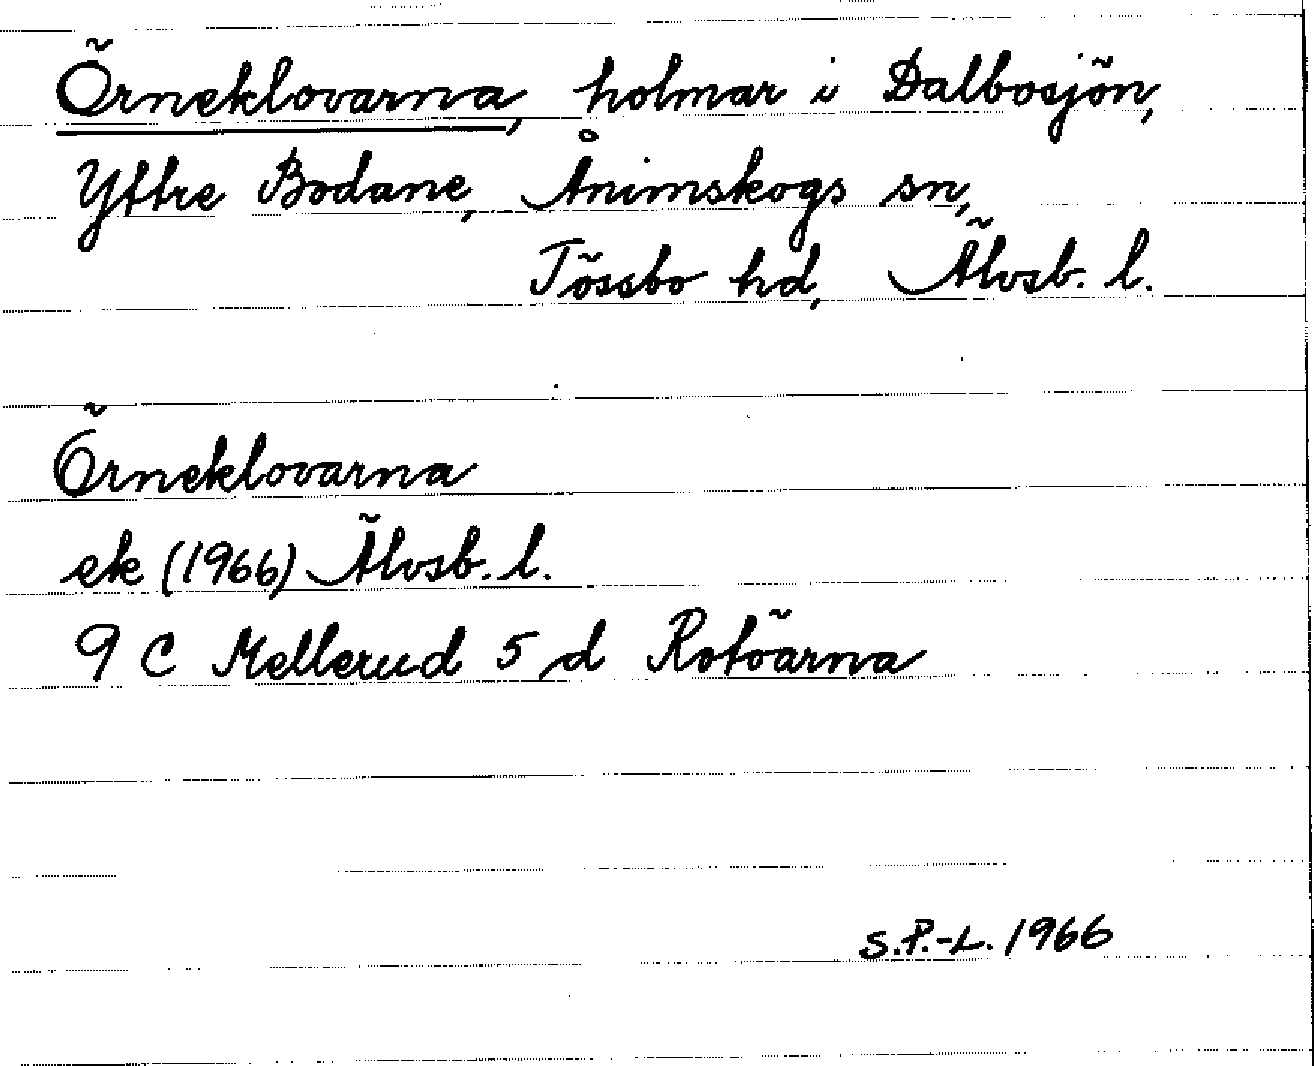 Örneklovarna, holmar i Dalbosjön,
Yttre Bodane, Ånimskogs sn,
Tössbo hd, Älvsb. l.
Örneklovarna
ek (1966) Älvsb. l.
9 C Mellerud 5 d Rotöarna
S.P.-L. 1966